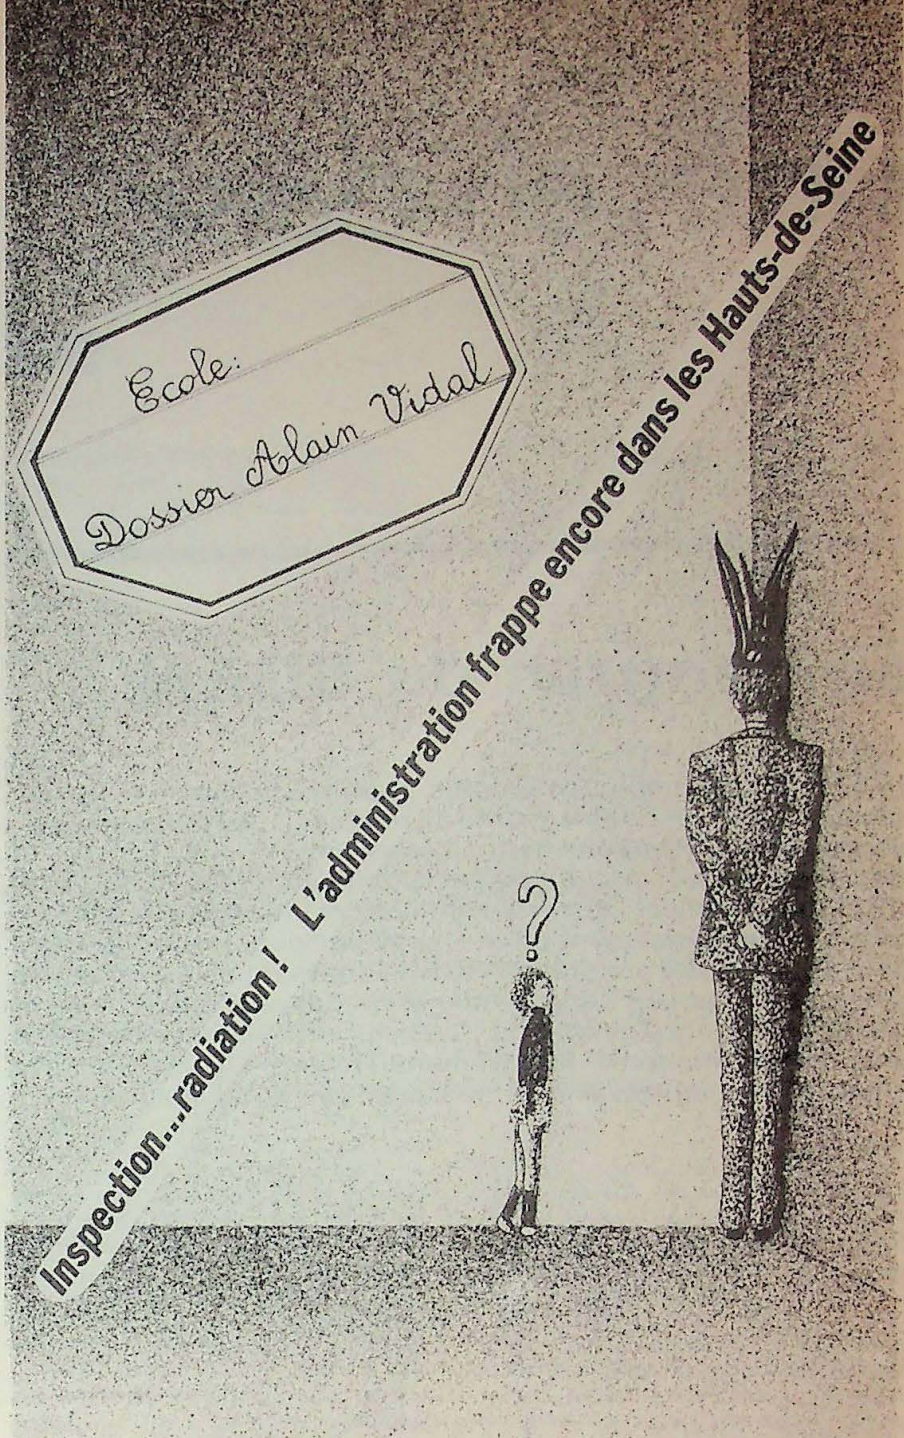 Ecole:
Dossier Alain Vidal
Inspection...radiation! L'administration frappe encore dans les Hauts-de-Seine
?